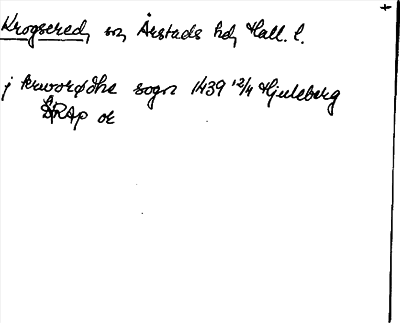 Krogsered, sn, Årstads hd, Hall. l.
j krwoorødhz sogn 1439 12/4 Hjuleberg
SRAp or